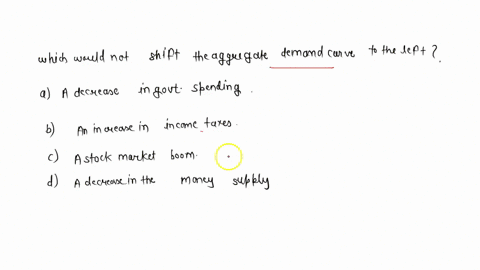 which would not shift the aggregate demand curve to the left?
a) A decrease in govt. spending.
b) An increase in income taxes.
c) A stock market boom.
d) A decrease in the money supply